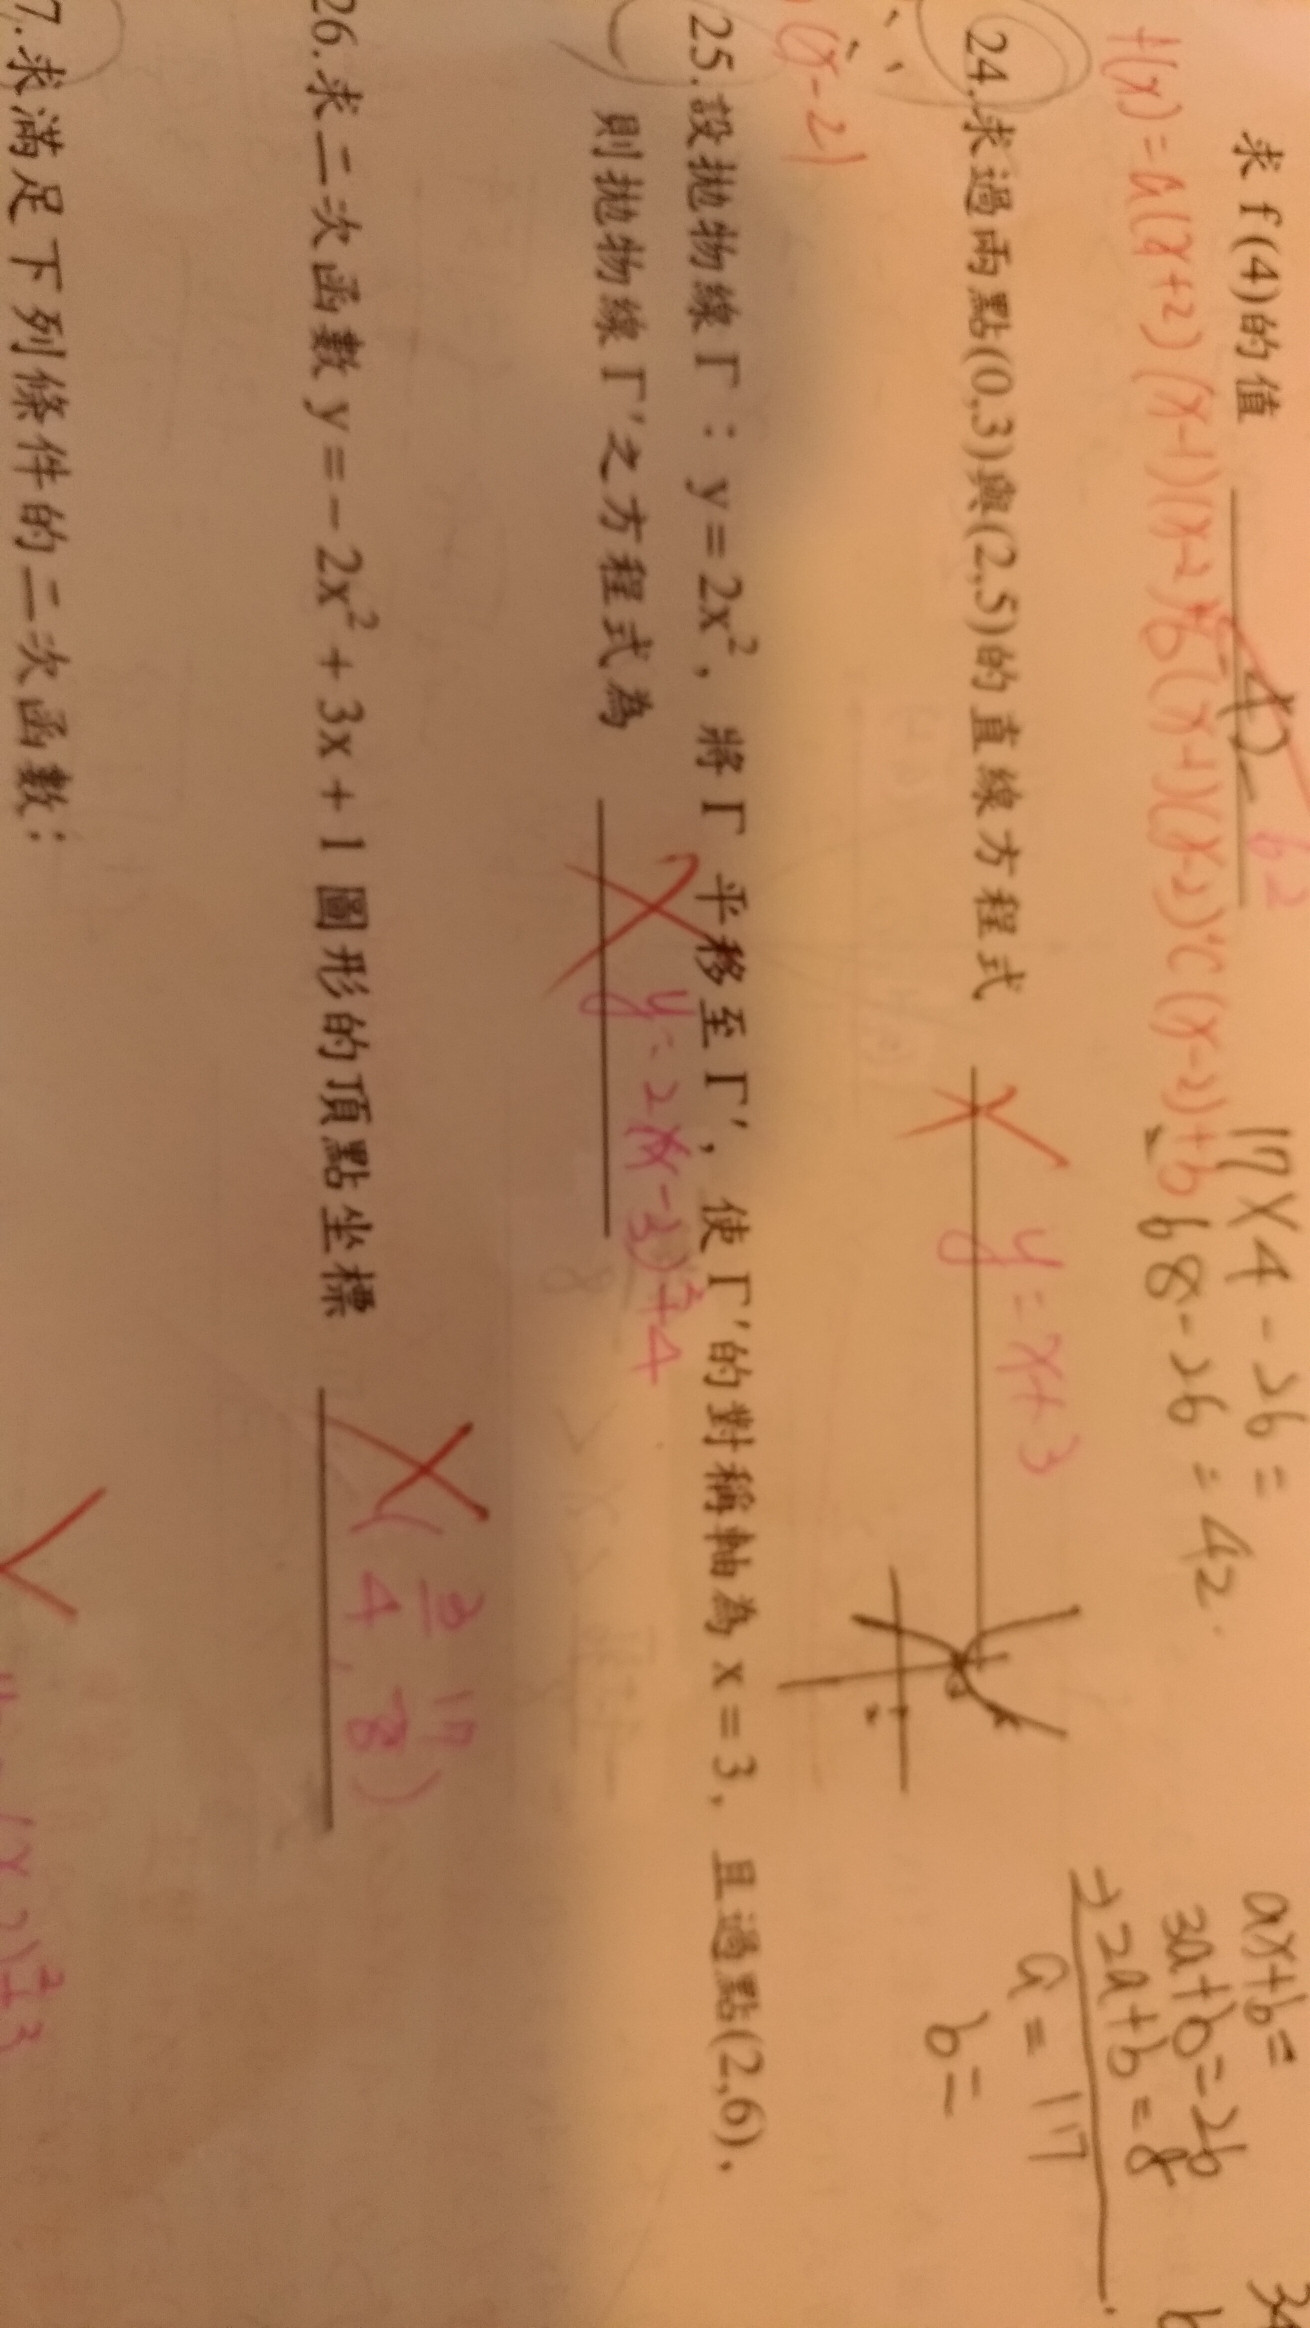 求 f(4)的值 42
62
17×4-26=
68-26=42.
ax+b=
3a+b=26
→2a+b=8
a=17
b=
f(x)=a(x+2)(x-1)(x-2)+b(x-1)(x-2)+c(x-2)+b
24.求過兩點(0,3)與(2,5)的直線方程式
y=x+3
(x-2)
25.設拋物線Γ：y=2x²，將Γ 平移至Γ′，使Γ′的對稱軸為 x=3，且過點(2,6)，
則拋物線Γ′之方程式為
y=2(x-3)²+4
26.求二次函數 y=-2x²+3x+1 圖形的頂點坐標
(3/4, 17/8)
7.求滿足下列條件的二次函數：